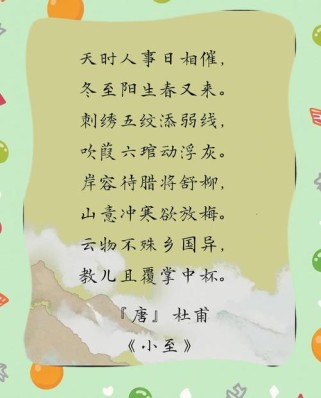 天时人事日相催，
冬至阳生春又来。
刺绣五纹添弱线，
吹葭六琯动浮灰。
岸容待腊将舒柳，
山意冲寒欲放梅。
云物不殊乡国异，
教儿且覆掌中杯。
『唐』 杜甫
《小至》